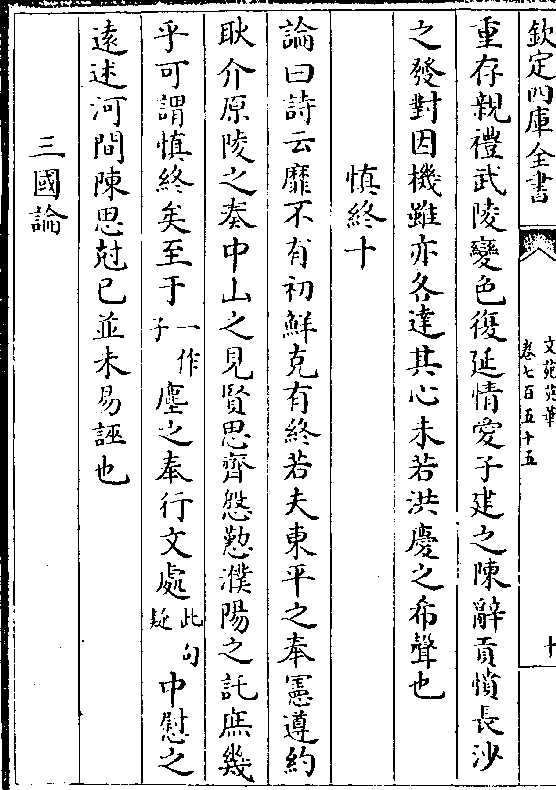 欽定四庫全書
文苑英華
卷七百五十五
十
重存親禮武陵變色復延情愛子建之陳辭貢憤長沙
之發對因機雖亦各達其心未若洪慶之希聲也
慎終十
論曰詩云靡不有初鮮克有終若夫東平之奉憲遵約
耿介原陵之奏中山之見賢思齊慇懃濮陽之託庶幾
乎可謂慎終矣至于一作子塵之奉行文處此句疑中慰之
遠述河間陳思尅已並未易誣也
三國論